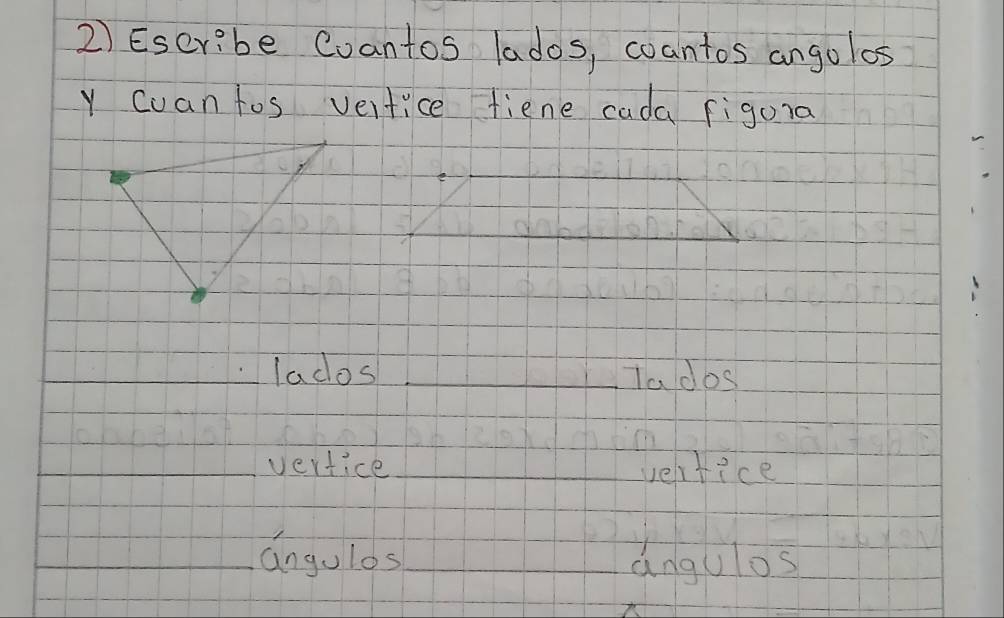 2) Escribe cuantos lados, cuantos angulos
y cuantos vertice tiene cada figura
lados lados
vertice vertice
ángulos ángulos